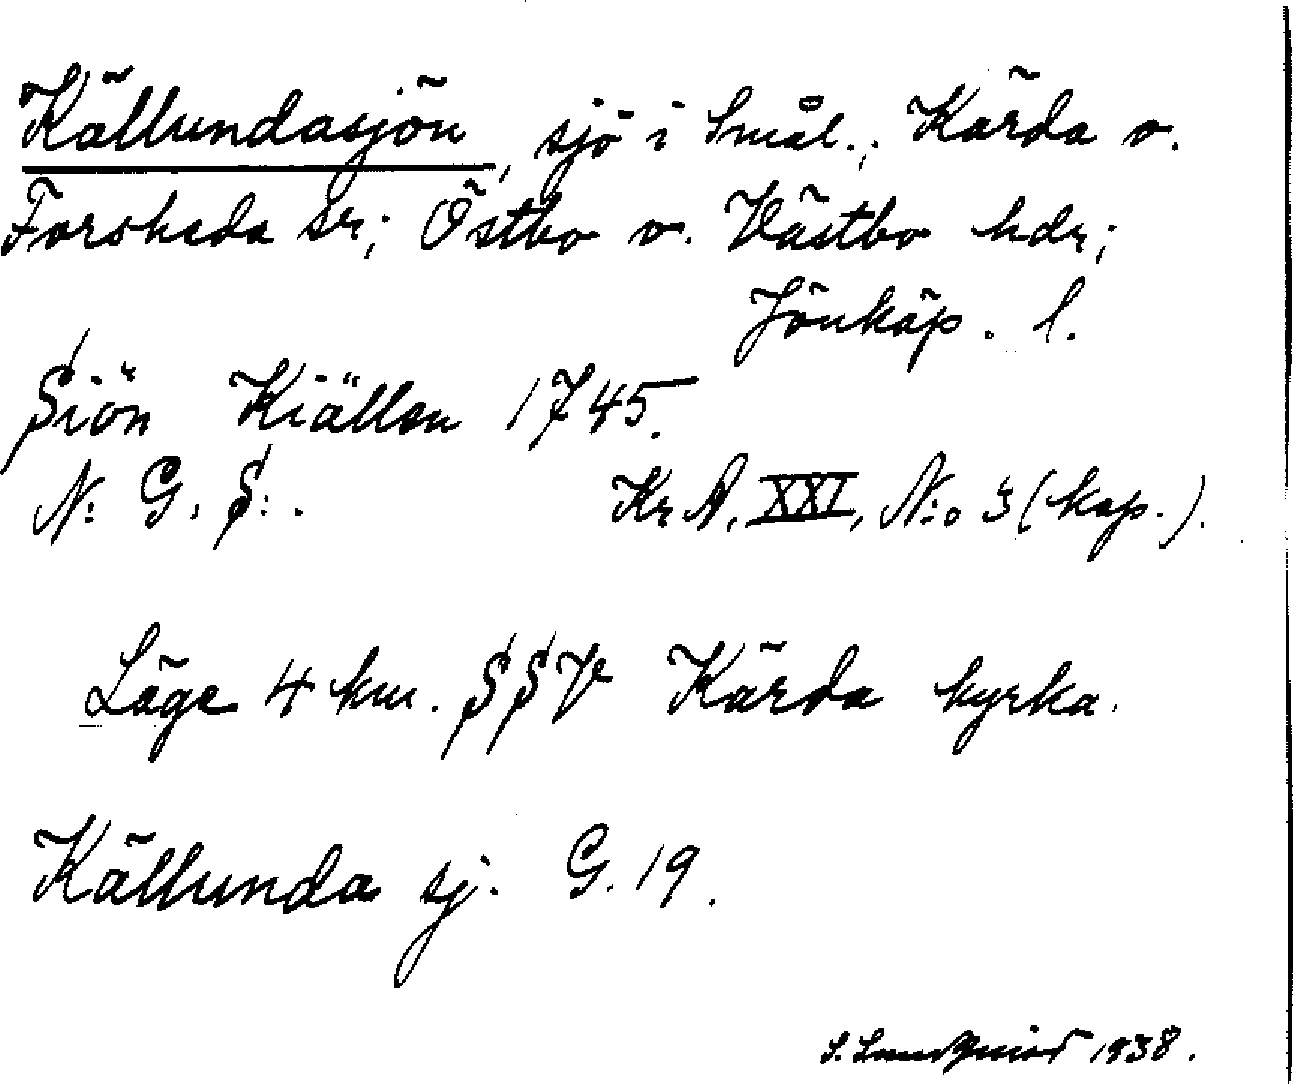 Källundasjön, sjö i Smål.; Kärda o.
Forsheda sr; Östbo o. Västbo hdr;
Jönköp. l.
Siön Kiällen 1745.
N: G. S: .
Kr A. XXI, N:o 3 (kap.).
Läge 4 km. SSV Kärda kyrka.
Källunda sj. G. 19.
S. Lundquist 1938.